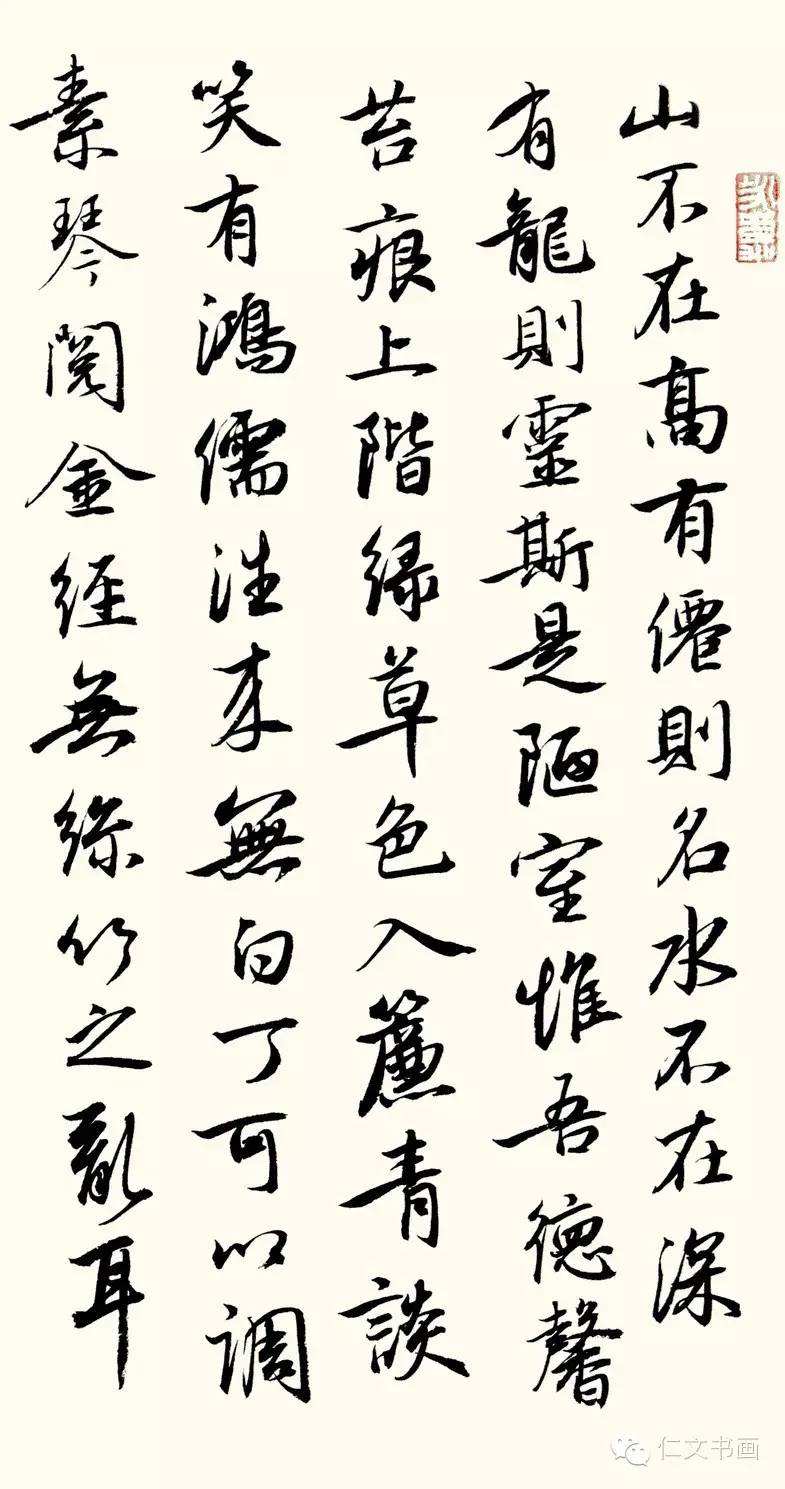 山不在高有僊則名水不在深
有龍則靈斯是陋室惟吾德馨
苔痕上階緑草色入簾青談
笑有鴻儒往来無白丁可以調
素琴閲金經無絲竹之亂耳
仁文书画